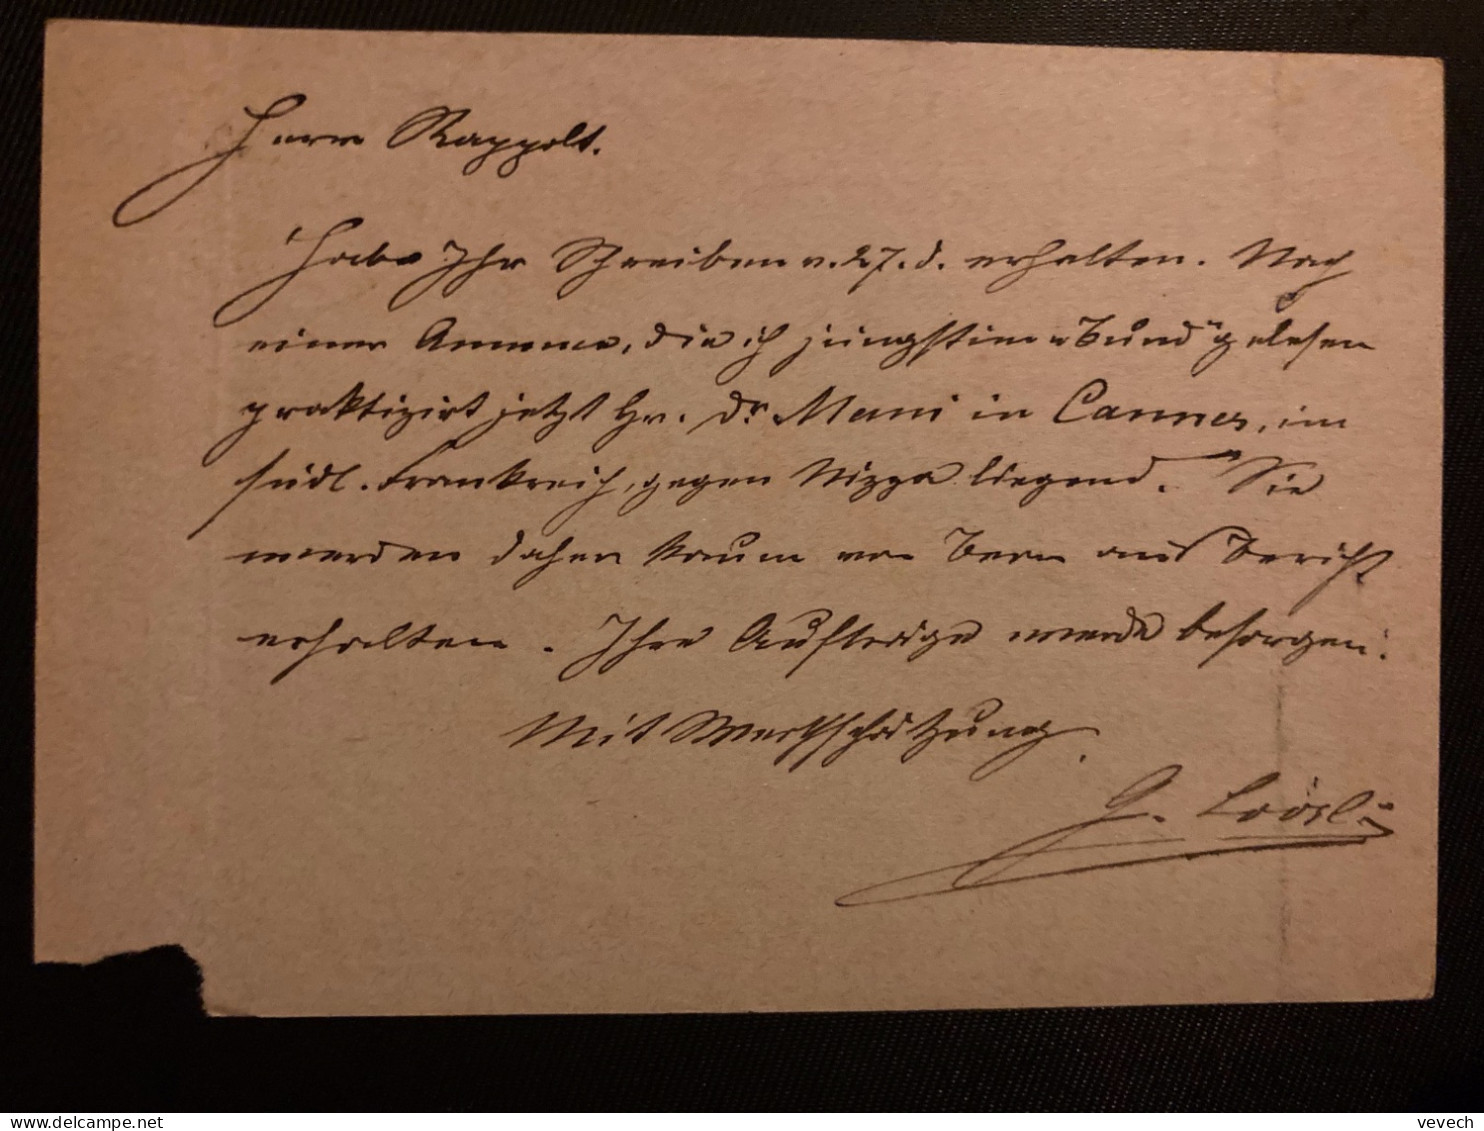 Herrn Rappolt.
Habe Ihr Schreiben v. 27. d. erhalten. Nach
einer Annonce, die ich jüngst im „Bund“ gelesen
praktizirt jetzt Hr. Dr. Mani in Cannes, im
südl. Frankreich, gegen Nizza liegend. Sie
werden daher kaum von Bern aus Bericht
erhalten. Ihre Aufträge werde besorgen.
Mit Werthschätzung
G. Loösli
vevech